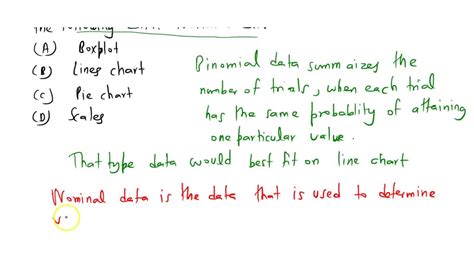 the following
(A) Boxplot
(B) Lines chart
(C) Pie chart
(D) Scales
Binomial data summaizes the
number of trials, when each trial
has the same probablity of attaining
one particular value.
That type data would best fit on line chart
Nominal data is the data that is used to determine